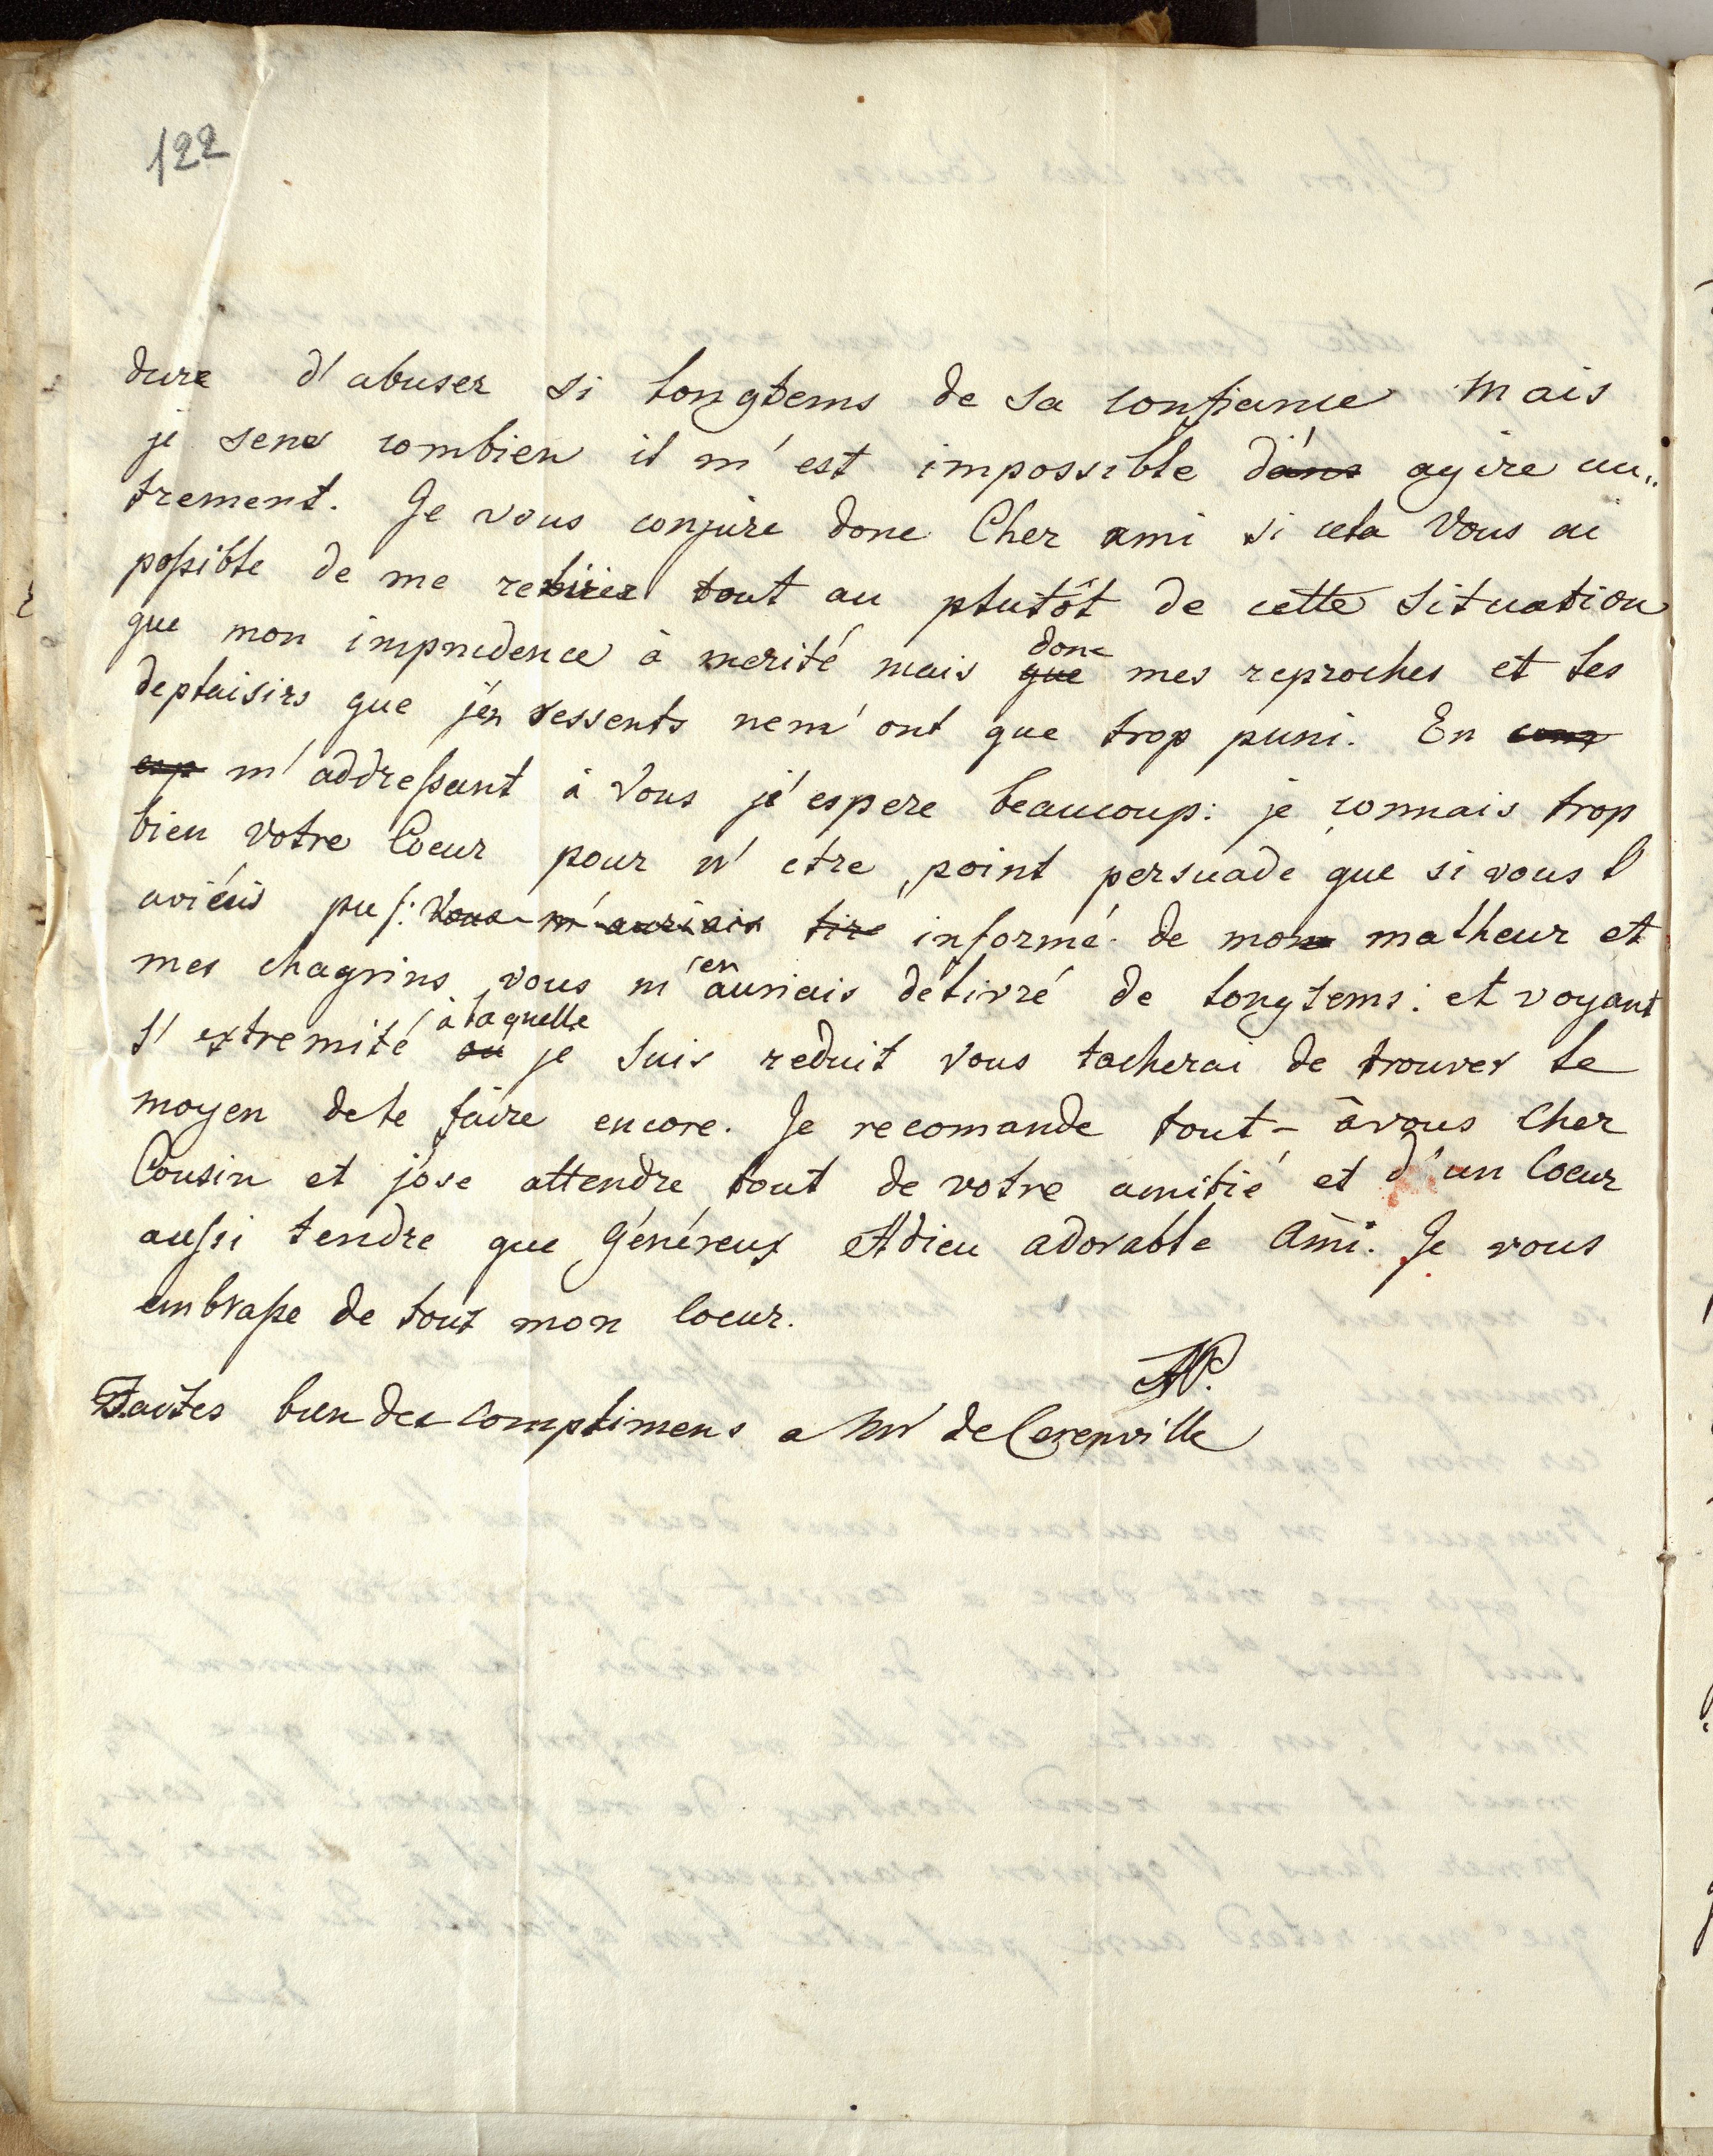 122
dure d'abuser si longtems de sa confiance mais
je sens combien il m'est impossible d'ans agire au„
trement. Je vous conjure donc Cher ami si cela Vous ai
possible de me retirer tout au plutôt de cette situation
que mon imprudence à merité mais que donc mes reproches et les
deplaisirs que j'en ressents nem'ont que trop puni. En
esp m'addressant à Vous j'espere beaucoup: je connais trop
bien votre Coeur pour n'etre point persuade que si vous l
aviéis pu/: Vous m'auriais tire informé de mon malheur et
mes chagrins, vous m'en auriais délivré de longtems: et voyant
l'extremité où à laquelle je suis reduit vous tacherai de trouver le
moyen dele faire encore. Je recomande tout- àvous cher
Cousin et j'ose attendre tout de votre amitié et d'un Coeur
aussi tendre que Généreux Adieu adorable Ami. Je vous
embrasse de tout mon Coeur.
AP.
Faites bien des complimens a Mr de Cerenville